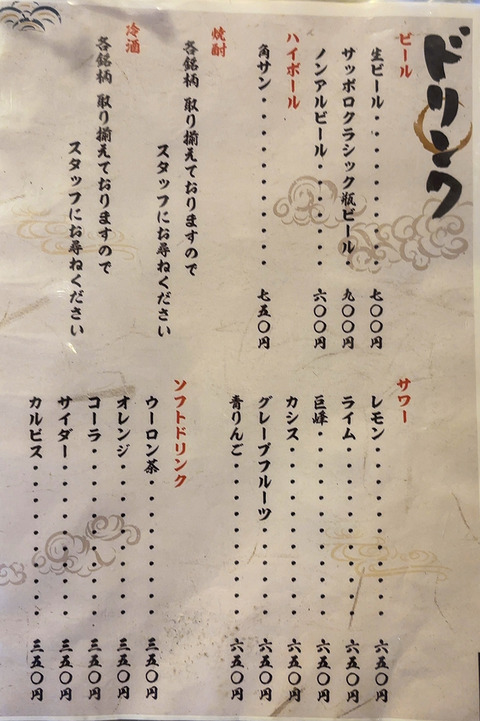 ドリンク
ビール
生ビール・・・・・・・・・・・七〇〇円
サッポロクラシック瓶ビール・九〇〇円
ノンアルビール・・・・・・・六〇〇円
ハイボール
角サン・・・・・・・・・・・七五〇円
焼酎
各銘柄 取り揃えておりますので
スタッフにお尋ねください
冷酒
各銘柄 取り揃えておりますので
スタッフにお尋ねください
サワー
レモン・・・・・・・・・・・六五〇円
ライム・・・・・・・・・・・六五〇円
巨峰・・・・・・・・・・・・六五〇円
カシス・・・・・・・・・・・六五〇円
グレープフルーツ・・・・・・六五〇円
青りんご・・・・・・・・・・六五〇円
ソフトドリンク
ウーロン茶・・・・・・・・・三五〇円
オレンジ・・・・・・・・・・三五〇円
コーラ・・・・・・・・・・・三五〇円
サイダー・・・・・・・・・・三五〇円
カルピス・・・・・・・・・・三五〇円